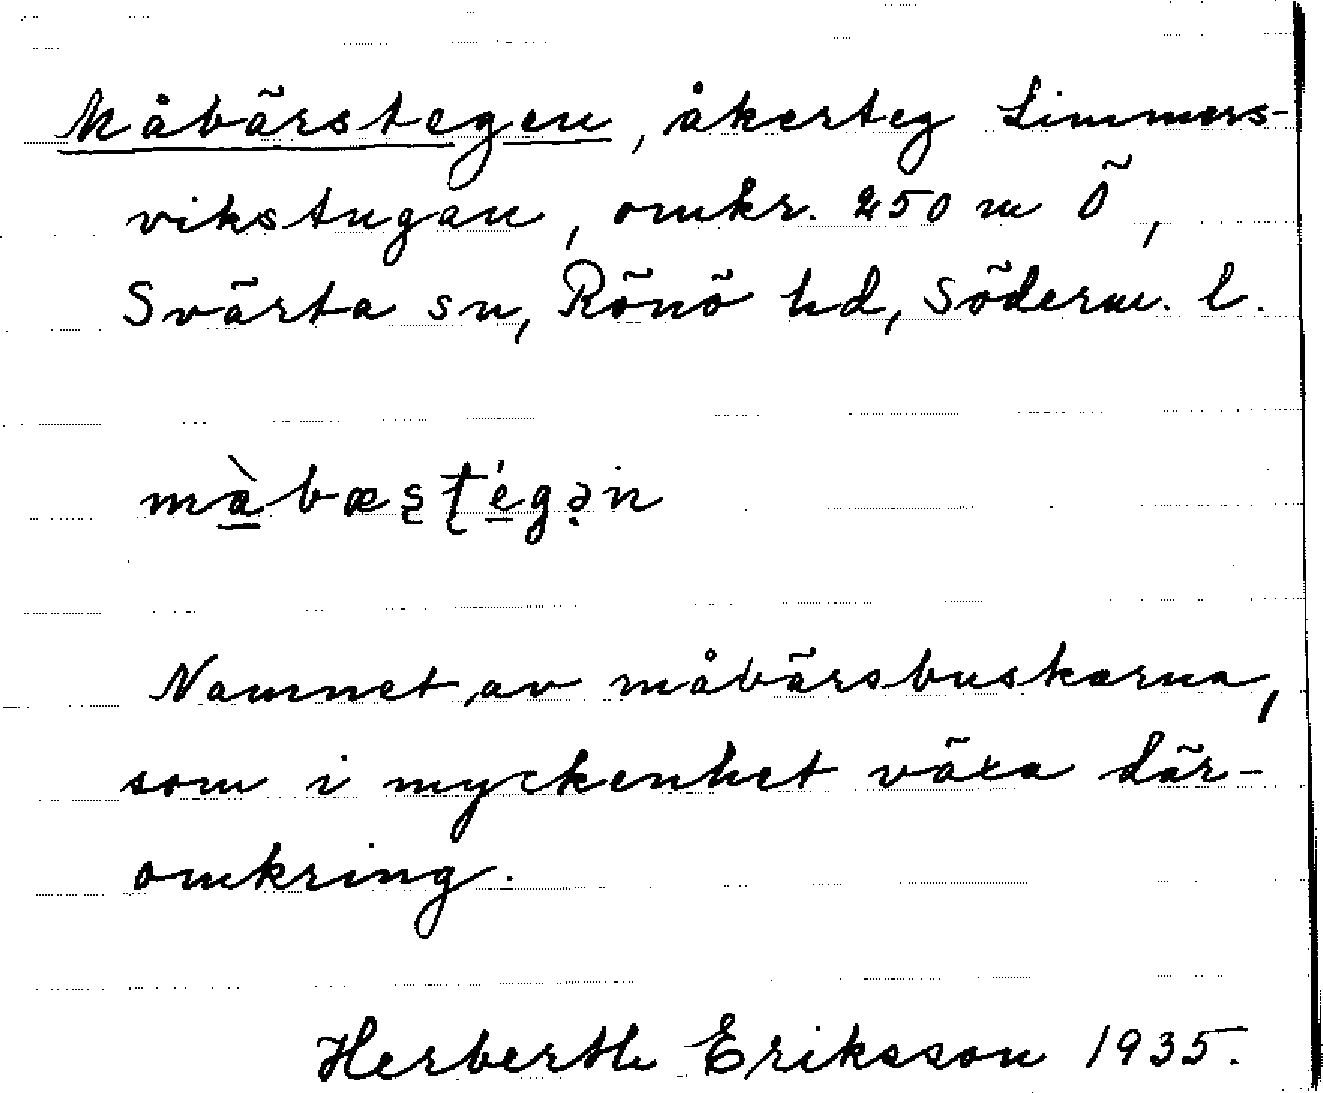 Måbärstegen, åkerteg Limmers-
vikstugan, omkr. 250 m Ö,
Svärta sn, Rönö hd, Söderm. l.
mà̲bæʂʈé̲gə̣n
Namnet av måbärsbuskarna,
som i myckenhet växa där-
omkring.
Herberth Eriksson 1935.